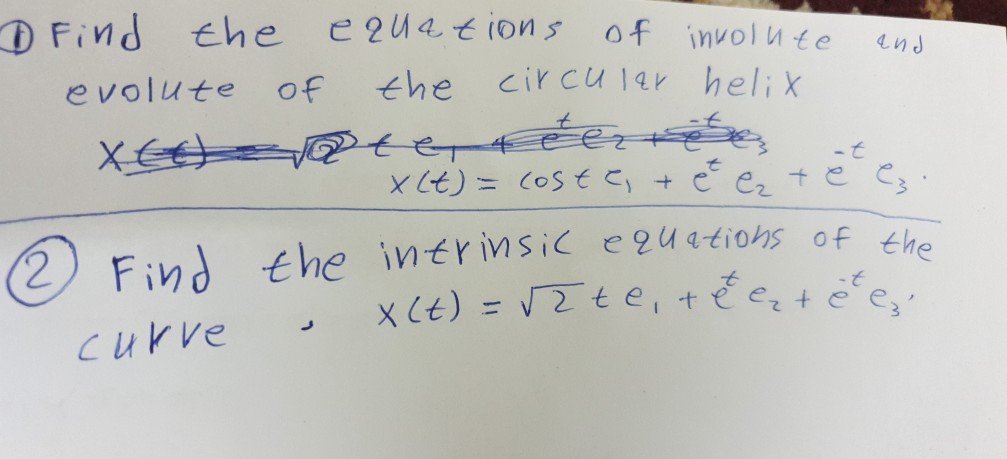 ① Find the equations of involute and
evolute of the circular helix
x(t) = √2 t e₁ + eᵗ e₂ + e⁻ᵗ e₃
x(t) = cost e₁ + eᵗ e₂ + e⁻ᵗ e₃.
② Find the intrinsic equations of the
curve, x(t) = √2 t e₁ + eᵗ e₂ + e⁻ᵗ e₃.